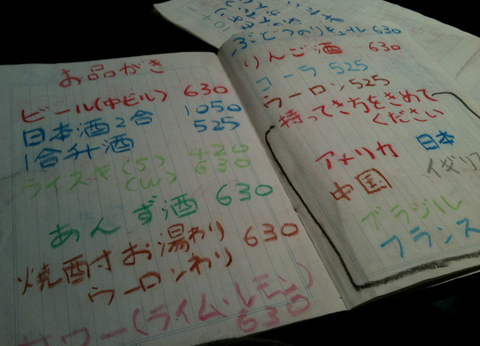 お品がき
ビール(中ビル) 630
日本酒2合 1050
1合升酒 525
ライスキ(S) 420
(W) 630
あんず酒 630
焼酎お湯わり 630
ウーロンわり
サワー(ライム・レモン)
630
ぶどうのリキュール 630
りんご酒 630
コーラ 525
ウーロン 525
持ってき方をきめて
ください
アメリカ 日本
中国 イギリ
ブラジル
フランス